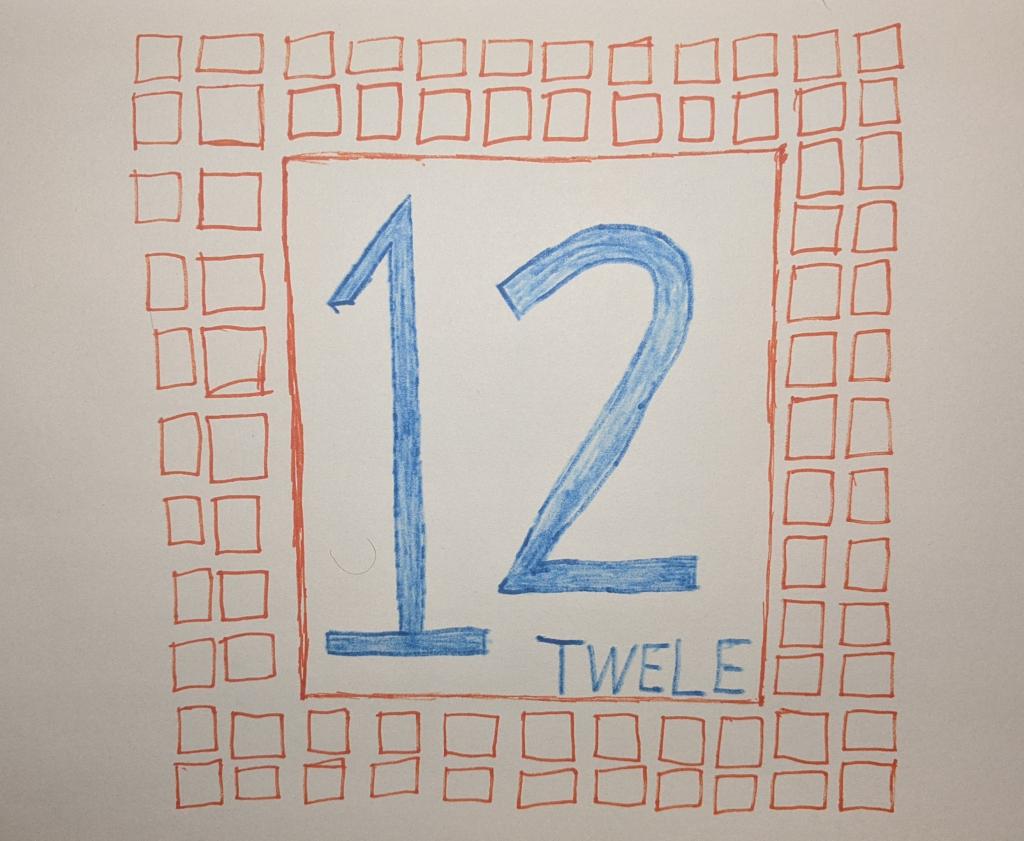 12
TWELE